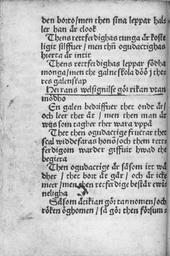 den boto/men then sina leppar hål=
ler han är clook
Thens rettferdighas tunga är koste
ligit silffuer/men thū ogudactighas
hierta är intit
Thens rettferdighas leppar födha
monga/men the galne skola döö j ther=
es galenskap
Herrans welsignilse gör rikan vtan
mödho
En galen bedriffuer thet ondt är/
och leer ther åt/men then man är
wijs som tagher ther wara vppå
Thet then ogudactige fructar thet
skal widderfaras honō/och them rett=
ferdigom warder giffuit hwad the
begiera
Then ogudactige är såsom itt wä
dher/thet bort åt går/och är icke
meer/men then retferdige består ewin=
neligha
Såsom ätikian gör tannomen/och
röken öghomen/så gör then försum=